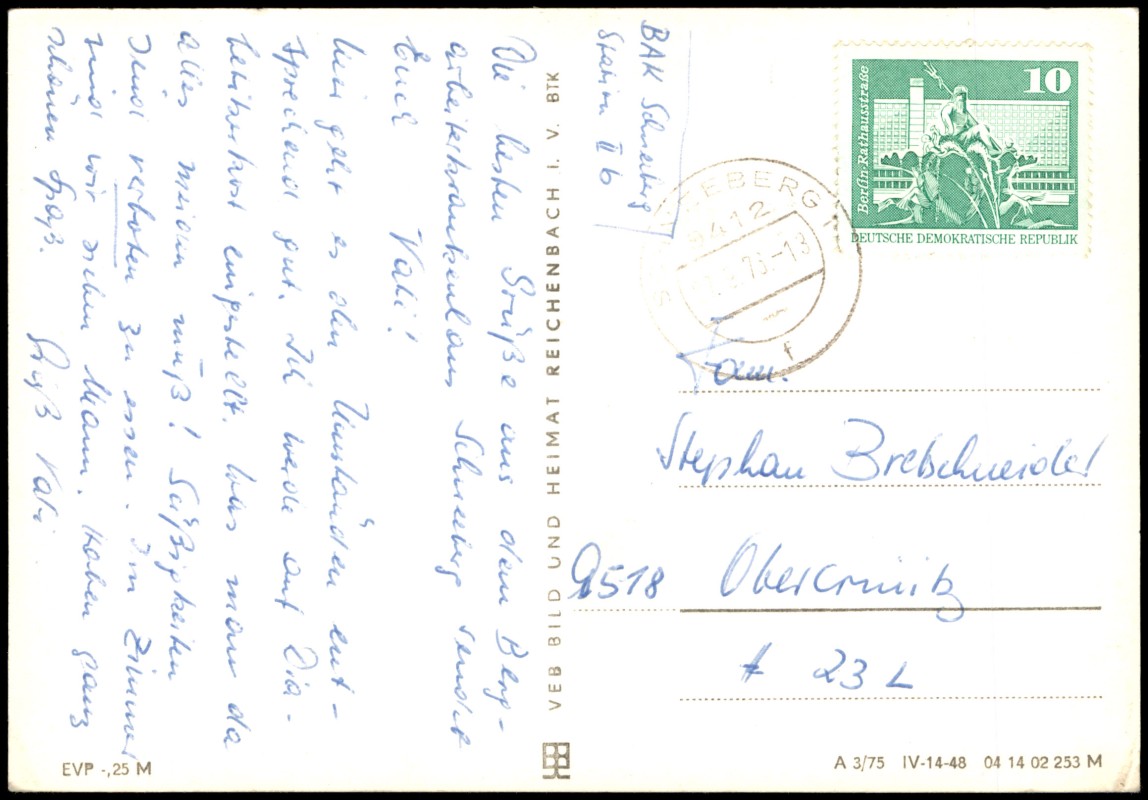 BAK Schneeberg
Station II b
Die besten Grüße aus dem Berg-
arbeiterkrankenhaus Schneeberg sendet
Euch Vati!
Hier geht es den Umständen ent-
sprechend gut. Ich werde auf Diä-
betikerkost eingestellt. Was man da
alles meiden muß! Süßigkeiten
sind verboten zu essen. Im Zimmer
sind wir sieben Mann. Haben ganz
schönen Spaß.
Gruß Vati
VEB BILD UND HEIMAT REICHENBACH I. V. BTK
10
Berlin-Rathausstraße
DEUTSCHE DEMOKRATISCHE REPUBLIK
SCHNEEBERG 1
9412
-13
f
Fam.
Stephan Bretschneider
9518 Obercrinitz
# 23 L
EVP -,25 M
A 3/75 IV-14-48 04 14 02 253 M